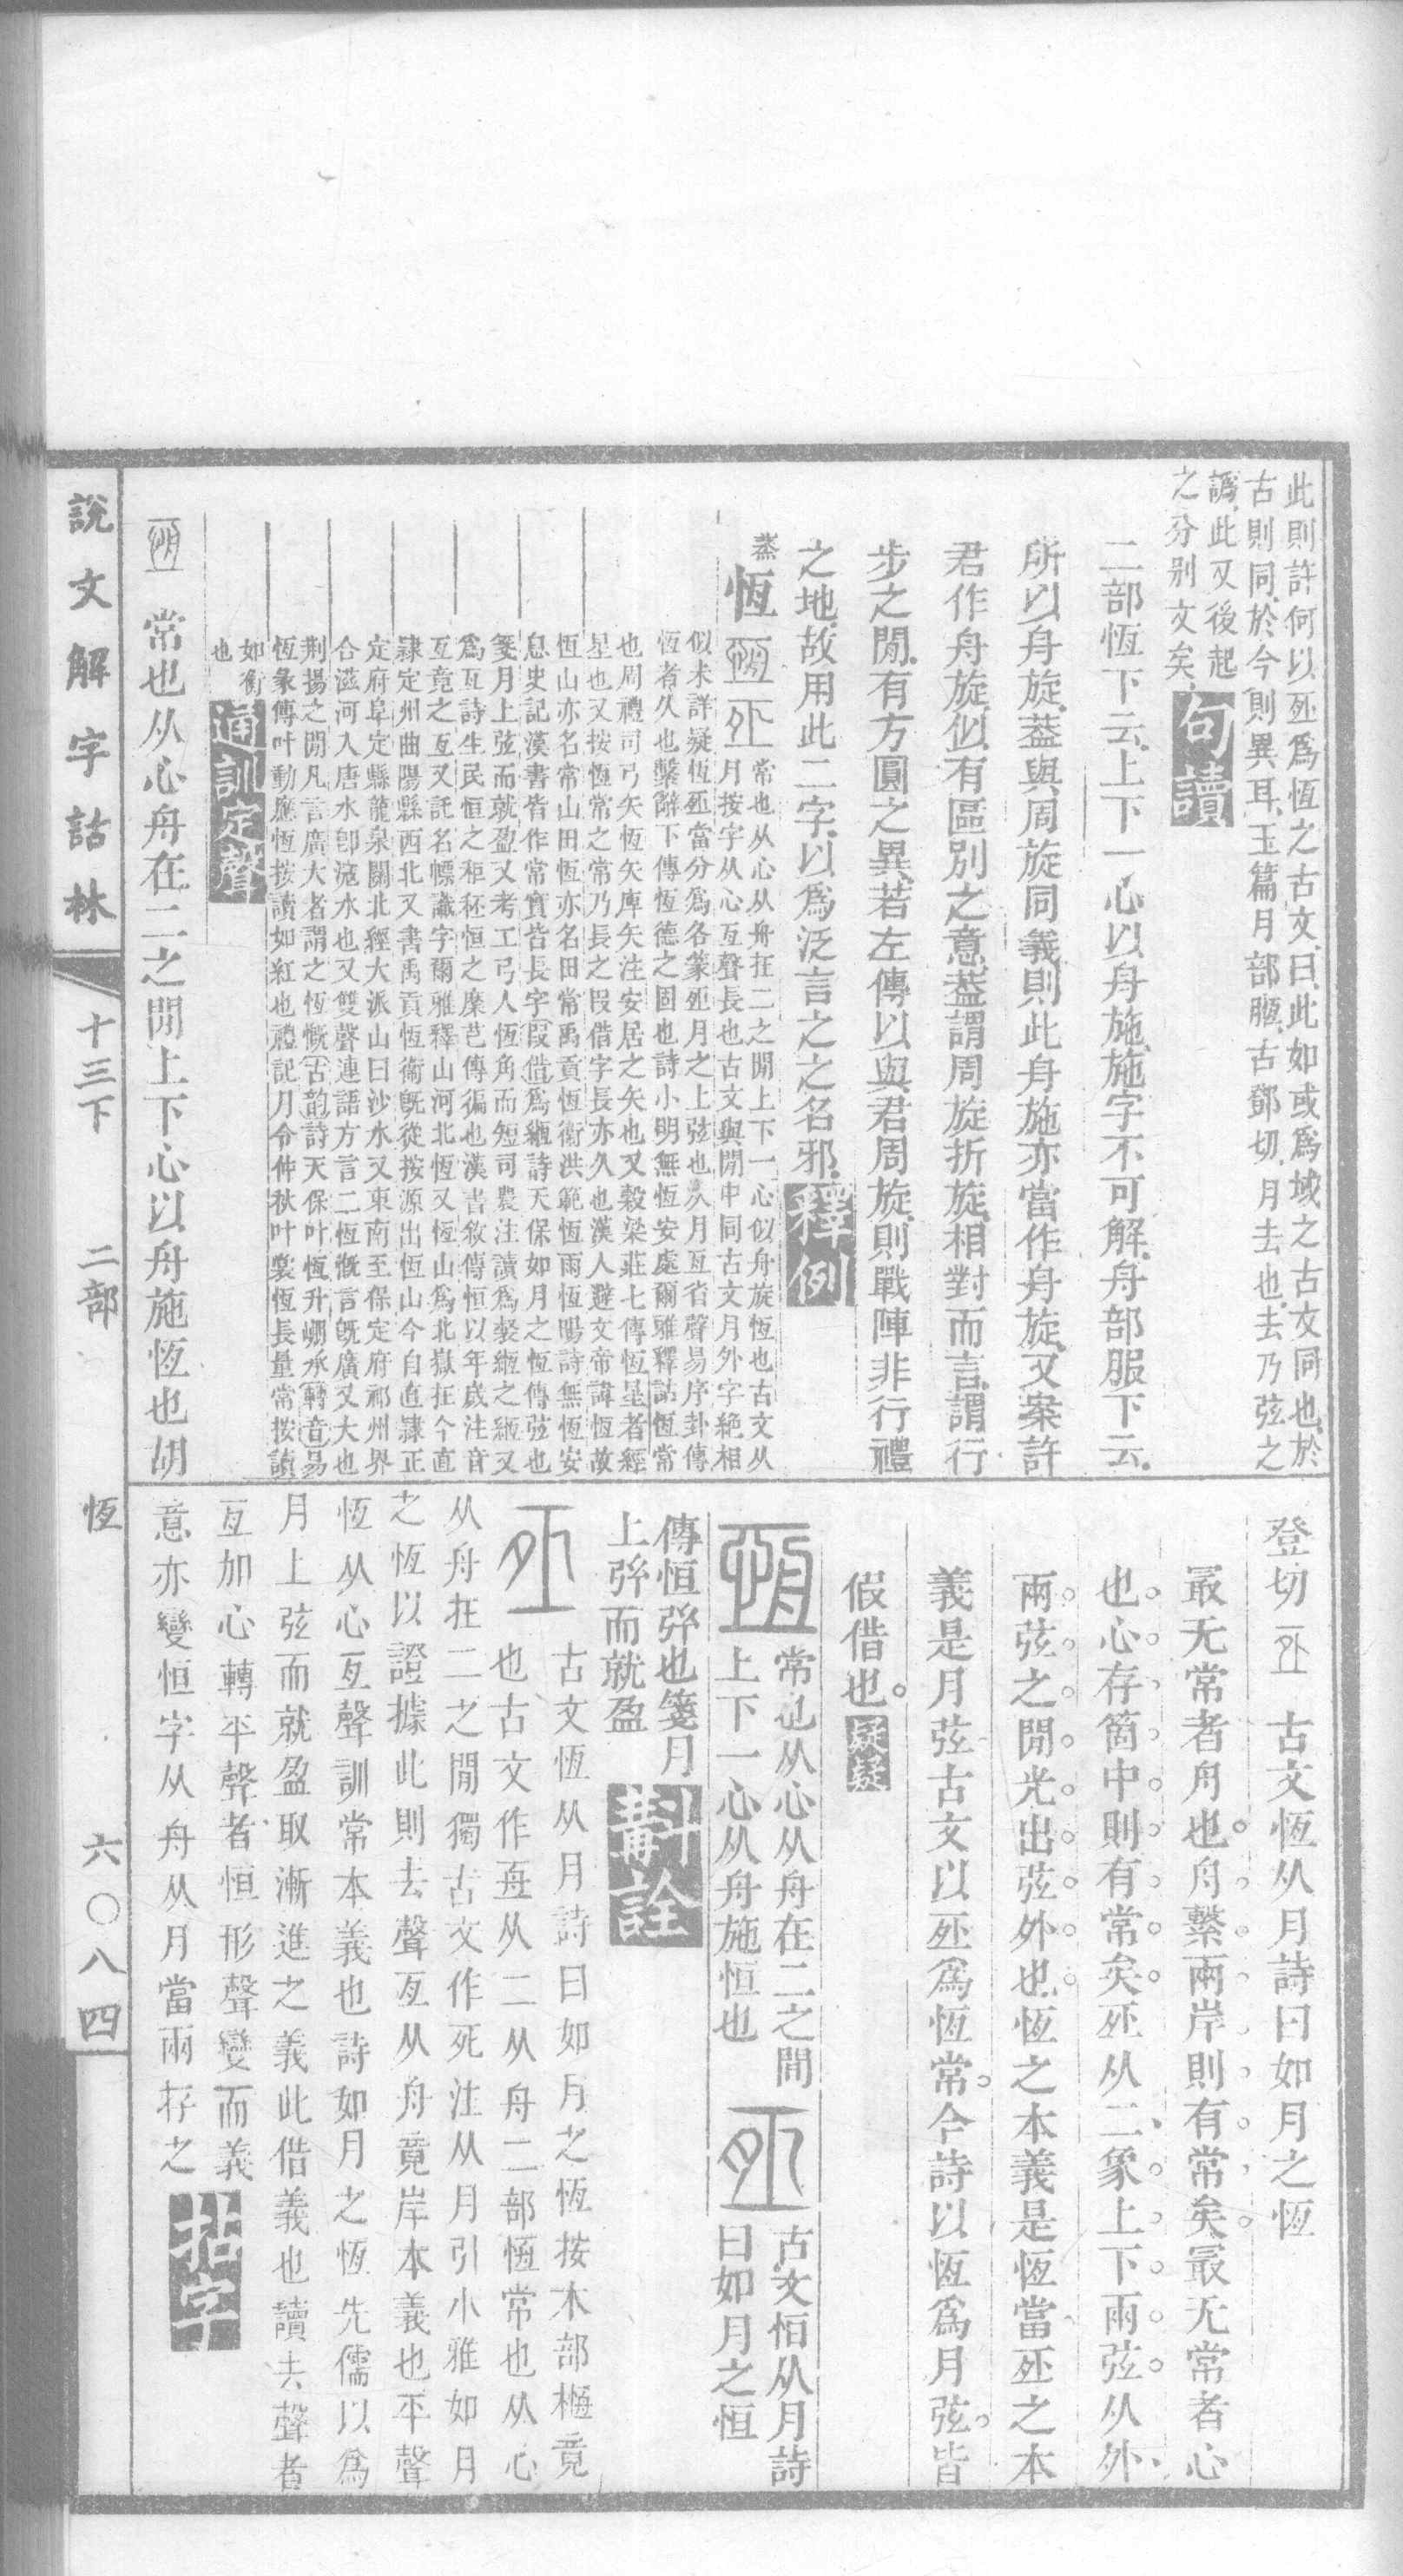 此則許何以𠄨爲恆之古文曰此如或爲域之古文同也於
古則同於今則異耳玉篇月部𣍦古鄧切月去也去乃弦之
譌此又後起
之分别文矣句讀
二部恆下云上下一心以舟施施字不可解舟部服下云
所以舟旋葢與周旋同義則此舟施亦當作舟旋又案許
君作舟旋似有區别之意葢謂周旋折旋相對而言謂行
步之閒有方圓之異若左傳以與君周旋則戰陣非行禮
之地故用此二字以爲泛言之之名邪釋例
蒸恆 常也从心从舟在二之閒上下一心似舟旋恆也古文从
月按字从心亙聲長也古文與閒中同古文月外字絶相
似未詳疑恆𠄨當分爲各篆𠄨月之上弦也从月亙省聲易序卦傳
恆者久也繫辭下傳恆德之固也詩小明無恆安處爾雅釋詁恆常
也周禮司弓矢恆矢庳矢注安居之矢也又穀梁莊七傳恆星者經
星也又按恆常之常乃長之叚借字長亦久也漢人避文帝諱恆故
恆山亦名常山田恆亦名田常禹貢恆衛洪範恆雨恆暘詩無恆安
息史記漢書皆作常實皆長字叚借爲緪詩天保如月之恆傳弦也
箋月上弦而就盈又考工弓人恆角而短司農注讀爲裻緪之緪又
爲亙詩生民恒之秬秠恒之穈芑傳徧也漢書敘傳恒以年歲注音
亙竟之亙又託名幖識字爾雅釋山河北恆又恆山爲北嶽在今直
隷定州曲陽縣西北又書禹貢恆衞旣從按源出恆山今自直隷正
定府阜定縣龍泉關北經大派山曰沙水又東南至保定府祁州界
合滋河入唐水卽滱水也又雙聲連語方言二恆慨言旣廣又大也
荆揚之閒凡言廣大者謂之恆慨古韵詩天保叶恆升崩承轉音易
恆彖傳叶動應恆按讀如紅也禮記月令仲秋叶裳恆長量常按讀
如衡
也通訓定聲
常也从心舟在二之閒上下心以舟施恆也胡
登切 古文恆从月詩曰如月之恆
最无常者舟也舟繫兩岸則有常矣最无常者心
也心存箇中則有常矣𠄨从二象上下兩弦从外
兩弦之閒光出弦外也恆之本義是恆當𠄨之本
義是月弦古文以𠄨爲恆常今詩以恆爲月弦皆
假借也疑疑
常也从心从舟在二之間
上下一心从舟施恒也
古文恒从月詩
曰如月之恒
傳恒弙也箋月
上弙而就盈斠詮
古文恆从月詩曰如月之恆按木部㮓竟
也古文作亙从二从舟二部恆常也从心
从舟在二之閒獨古文作死注从月引小雅如月
之恆以證據此則去聲亙从舟竟岸本義也平聲
恆从心亙聲訓常本義也詩如月之恆先儒以爲
月上弦而就盈取漸進之義此借義也讀去聲者
亙加心轉平聲者恒形聲變而義
意亦變恒字从舟从月當兩存之拈字
說文解字詁林 十三下 二部 恆 六〇八四